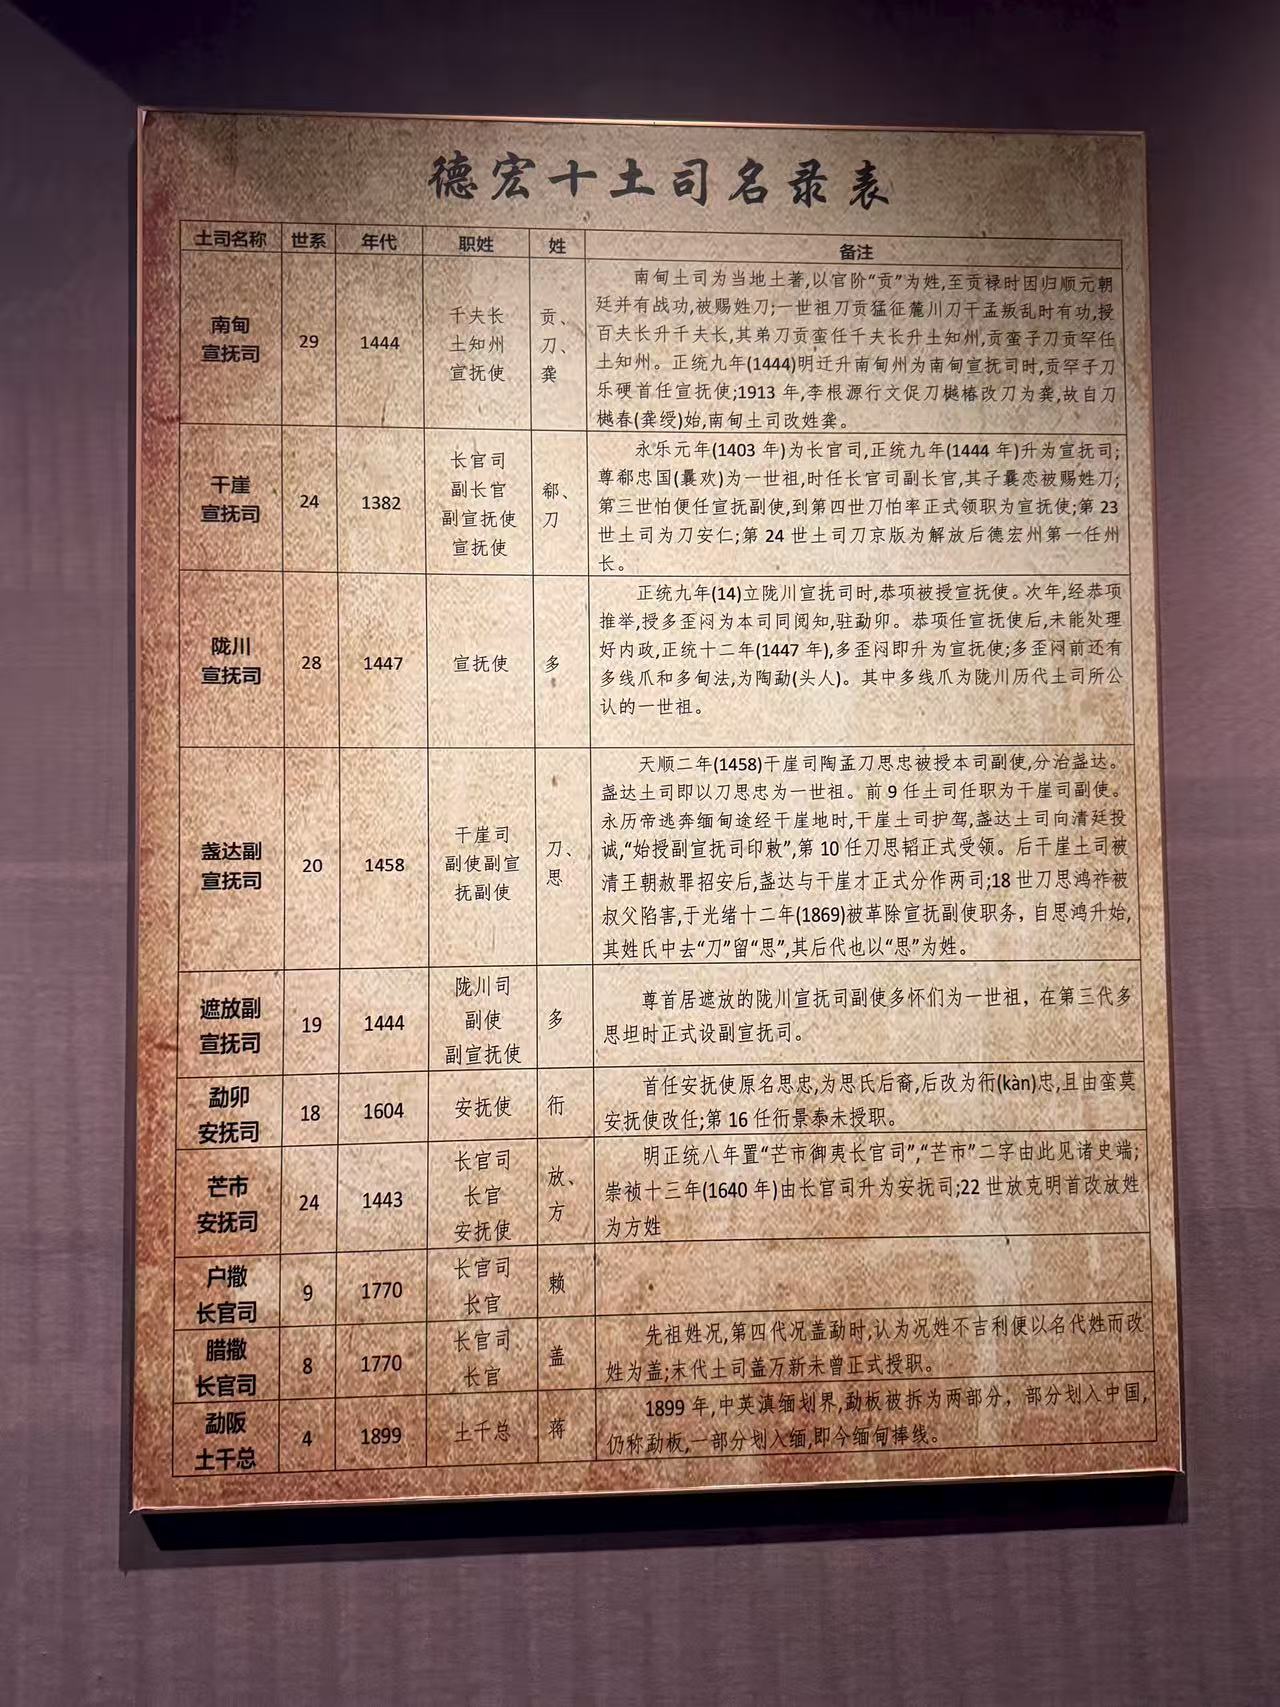 德宏十土司名录表
土司名称 世系 年代 职姓 姓 备注
南甸
宣抚司
29
1444
千夫长
土知州
宣抚使
贡、
刀、
龚
南甸土司为当地土著,以官阶“贡”为姓,至贡禄时因归顺元朝
廷并有战功,被赐姓刀;一世祖刀贡猛征麓川刀干孟叛乱时有功,授
百夫长升千夫长,其弟刀贡蛮任千夫长升土知州,贡蛮子刀贡罕任
土知州。正统九年(1444)明迁升南甸州为南甸宣抚司时,贡罕子刀
乐硬首任宣抚使;1913 年,李根源行文促刀樾椿改刀为龚,故自刀
樾春(龚绶)始,南甸土司改姓龚。
干崖
宣抚司
24
1382
长官司
副长官
副宣抚使
宣抚使
郗、
刀
永乐元年(1403 年)为长官司,正统九年(1444 年)升为宣抚司;
尊郗忠国(曩欢)为一世祖,时任长官司副长官,其子曩恋被赐姓刀;
第三世怕便任宣抚副使,到第四世刀怕率正式领职为宣抚使;第 23
世土司为刀安仁;第 24 世土司刀京版为解放后德宏州第一任州
长。
陇川
宣抚司
28
1447
宣抚使
多
正统九年(14)立陇川宣抚司时,恭项被授宣抚使。次年,经恭项
推举,授多歪闷为本司同阅知,驻勐卯。恭项任宣抚使后,未能处理
好内政,正统十二年(1447 年),多歪闷即升为宣抚使;多歪闷前还有
多线爪和多甸法,为陶勐(头人)。其中多线爪为陇川历代土司所公
认的一世祖。
盏达副
宣抚司
20
1458
干崖司
副使副宣
抚副使
刀、
思
天顺二年(1458)干崖司陶孟刀思忠被授本司副使,分治盏达。
盏达土司即以刀思忠为一世祖。前 9 任土司任职为干崖司副使。
永历帝逃奔缅甸途经干崖地时,干崖土司护驾,盏达土司向清廷投
诚,“始授副宣抚司印敕”,第 10 任刀思韬正式受领。后干崖土司被
清王朝赦罪招安后,盏达与干崖才正式分作两司;18 世刀思鸿祚被
叔父陷害,于光绪十二年(1869)被革除宣抚副使职务，自思鸿升始,
其姓氏中去“刀”留“思”,其后代也以“思”为姓。
遮放副
宣抚司
19
1444
陇川司
副使
副宣抚使
多
尊首居遮放的陇川宣抚司副使多怀们为一世祖，在第三代多
思坦时正式设副宣抚司。
勐卯
安抚司
18
1604
安抚使
衎
首任安抚使原名思忠,为思氏后裔,后改为衎(kàn)忠,且由蛮莫
安抚使改任;第 16 任衎景泰未授职。
芒市
安抚司
24
1443
长官司
长官
安抚使
放、
方
明正统八年置“芒市御夷长官司”,“芒市”二字由此见诸史端;
崇祯十三年(1640 年)由长官司升为安抚司;22 世放克明首改放姓
为方姓
户撒
长官司
9
1770
长官司
长官
赖
腊撒
长官司
8
1770
长官司
长官
盖
先祖姓况,第四代况盖勐时,认为况姓不吉利便以名代姓而改
姓为盖;末代土司盖万新未曾正式授职。
勐阪
土千总
4
1899
土千总
蒋
1899 年,中英滇缅划界,勐板被拆为两部分，部分划入中国,
仍称勐板,一部分划入缅,即今缅甸捧线。